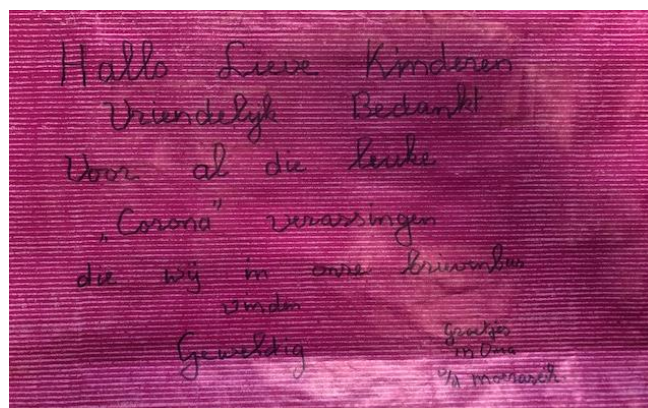 Hallo Lieve Kinderen
Vriendelyk Bedankt
Voor al die leuke
„Corona" verassingen
die wij in onze brievenbus
vinden
Geweldig
Groetjes